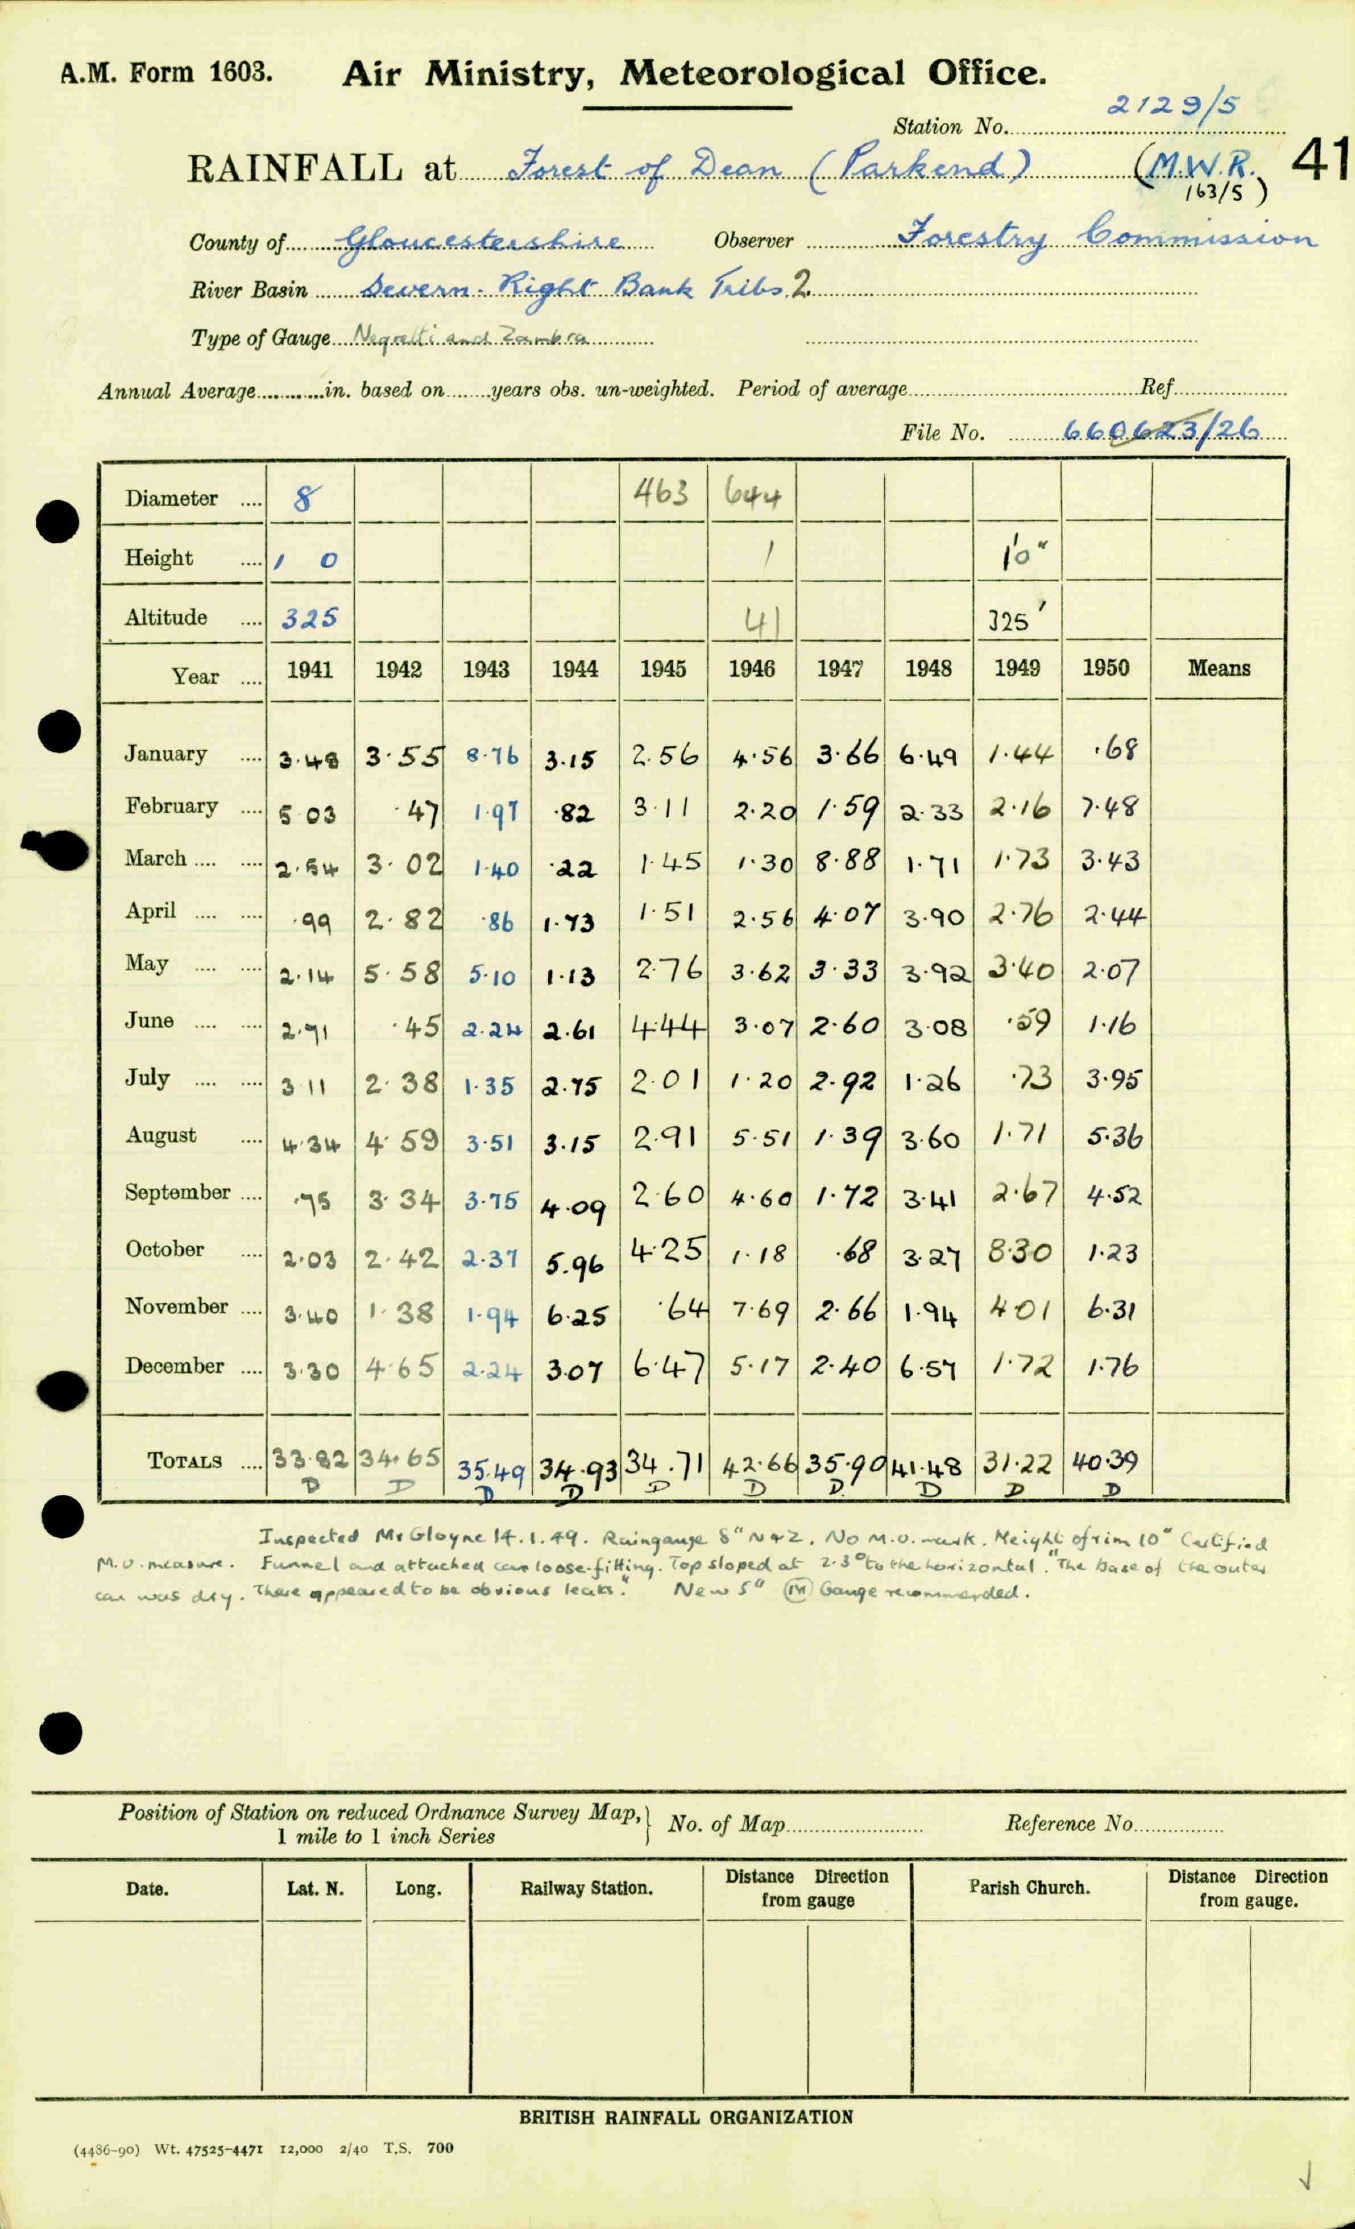 A.M. Form 1603. Air Ministry, Meteorological Office.
Station No. 2129/5
RAINFALL at Forest of Dean (Parkend) (M.W.R. 163/5) 41
County of Gloucestershire Observer Forestry Commission
River Basin Severn - Right Bank Tribs. 2.
Type of Gauge Negretti and Zambra
Annual Average in. based on years obs. un-weighted. Period of average Ref
File No. 660623/26
Diameter 8 463 644
Height 1 0 1 1'0"
Altitude 325 41 325'
Year 1941 1942 1943 1944 1945 1946 1947 1948 1949 1950 Means
January 3.48 3.55 8.76 3.15 2.56 4.56 3.66 6.49 1.44 .68
February 5.03 .47 1.97 .82 3.11 2.20 1.59 2.33 2.16 7.48
March 2.54 3.02 1.40 .22 1.45 1.30 8.88 1.71 1.73 3.43
April .99 2.82 .86 1.73 1.51 2.56 4.07 3.90 2.76 2.44
May 2.14 5.58 5.10 1.13 2.76 3.62 3.33 3.92 3.40 2.07
June 2.71 .45 2.24 2.61 4.44 3.07 2.60 3.08 .59 1.16
July 3.11 2.38 1.35 2.75 2.01 1.20 2.92 1.26 .73 3.95
August 4.34 4.59 3.51 3.15 2.91 5.51 1.39 3.60 1.71 5.36
September .75 3.34 3.75 4.09 2.60 4.60 1.72 3.41 2.67 4.52
October 2.03 2.42 2.37 5.96 4.25 1.18 .68 3.27 8.30 1.23
November 3.40 1.38 1.94 6.25 .64 7.69 2.66 1.94 4.01 6.31
December 3.30 4.65 2.24 3.07 6.47 5.17 2.40 6.57 1.72 1.76
TOTALS 33.82 34.65 35.49 34.93 34.71 42.66 35.90 41.48 31.22 40.39
D D D D D D D D D D
Inspected Mr Gloyne 14.1.49. Raingauge 8" N&Z. No M.O. mark. Height of rim 10" Certified
M.O. measure. Funnel and attached can loose-fitting. Top sloped at 2-3° to the horizontal. "The base of the outer
can was dry. There appeared to be obvious leaks." New 5" Gauge recommended.
Position of Station on reduced Ordnance Survey Map, 1 mile to 1 inch Series No. of Map Reference No.
Date. Lat. N. Long. Railway Station. Distance Direction from gauge Parish Church. Distance Direction from gauge.
BRITISH RAINFALL ORGANIZATION
(4486-90) Wt. 47525-4471 12,000 2/40 T.S. 700